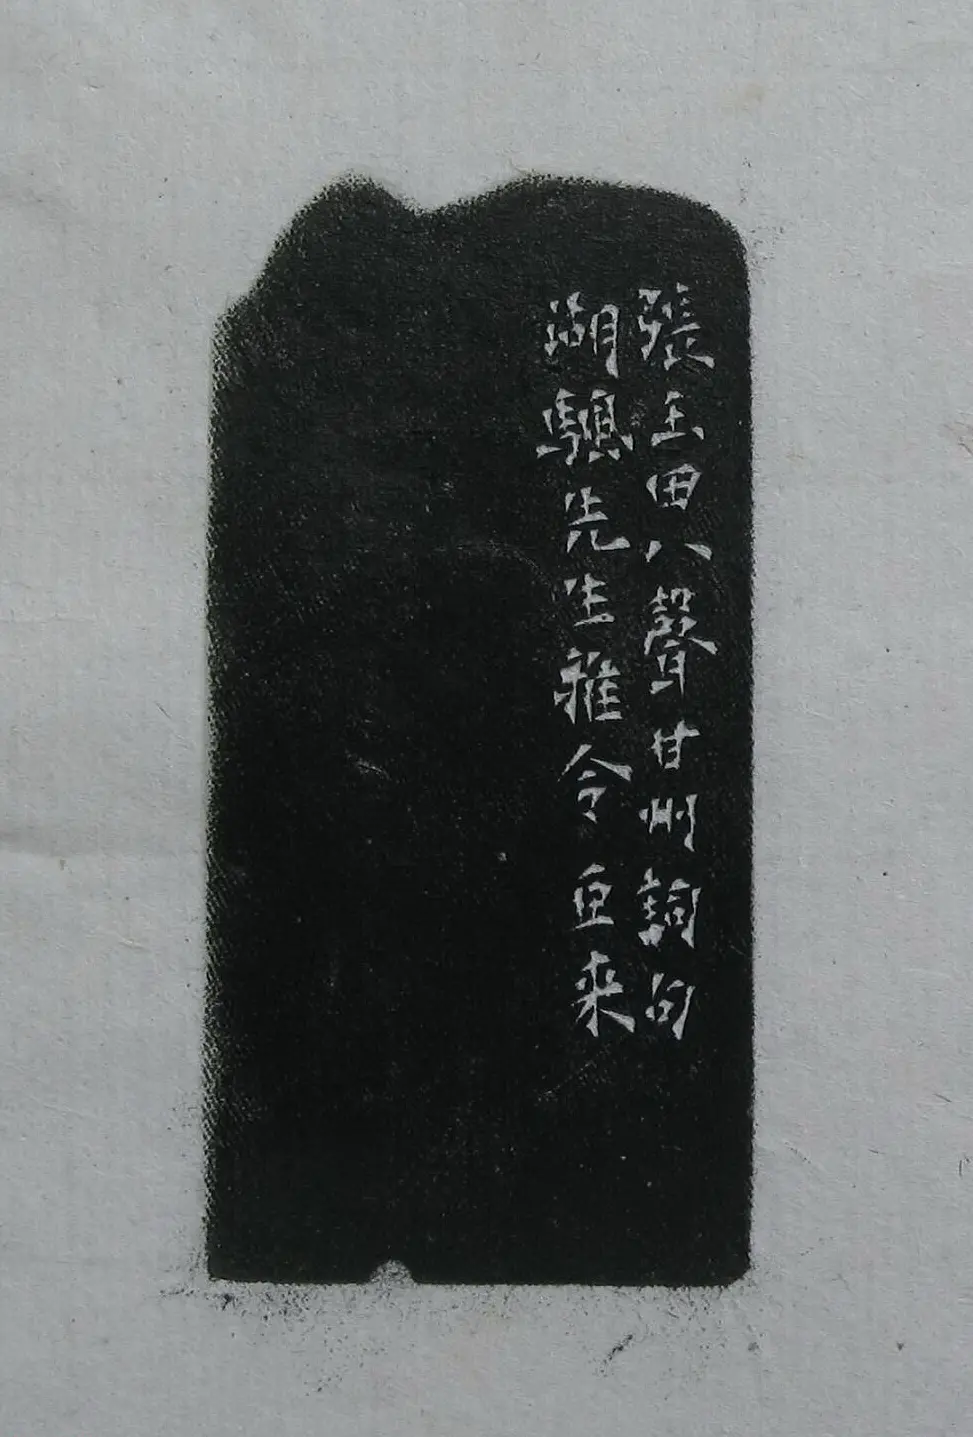 張玉田八聲甘州詞句
湖颿先生雅令巨来